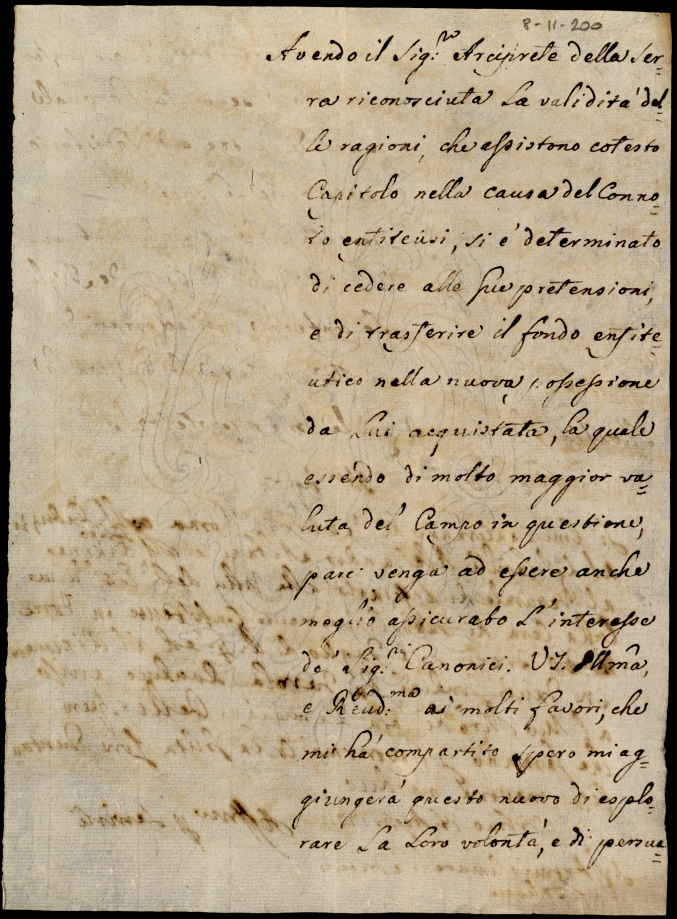 8-11-200
Avendo il Sig:re Arciprete della Ser=
ra riconosciuta La validità del=
le ragioni, che assistono cotesto
Capitolo nella causa del Conno=
to enfiteusi, si é determinato
di cedere alle sue pretensioni,
e di trasferire il fondo enfite=
utico nella nuova possessione
da Lui acquistata, la quale
essendo di molto maggior va=
luta del' Campo in questione,
pare venga ad essere anche
meglio assicurato L'interesse
de' Sig:ri Canonici. VS. Illma,
e Reud:ma ai molti favori, che
mi há compartito spero mi ag=
giungerá questo nuovo di esplo=
rare La Loro volontá, e di persua=